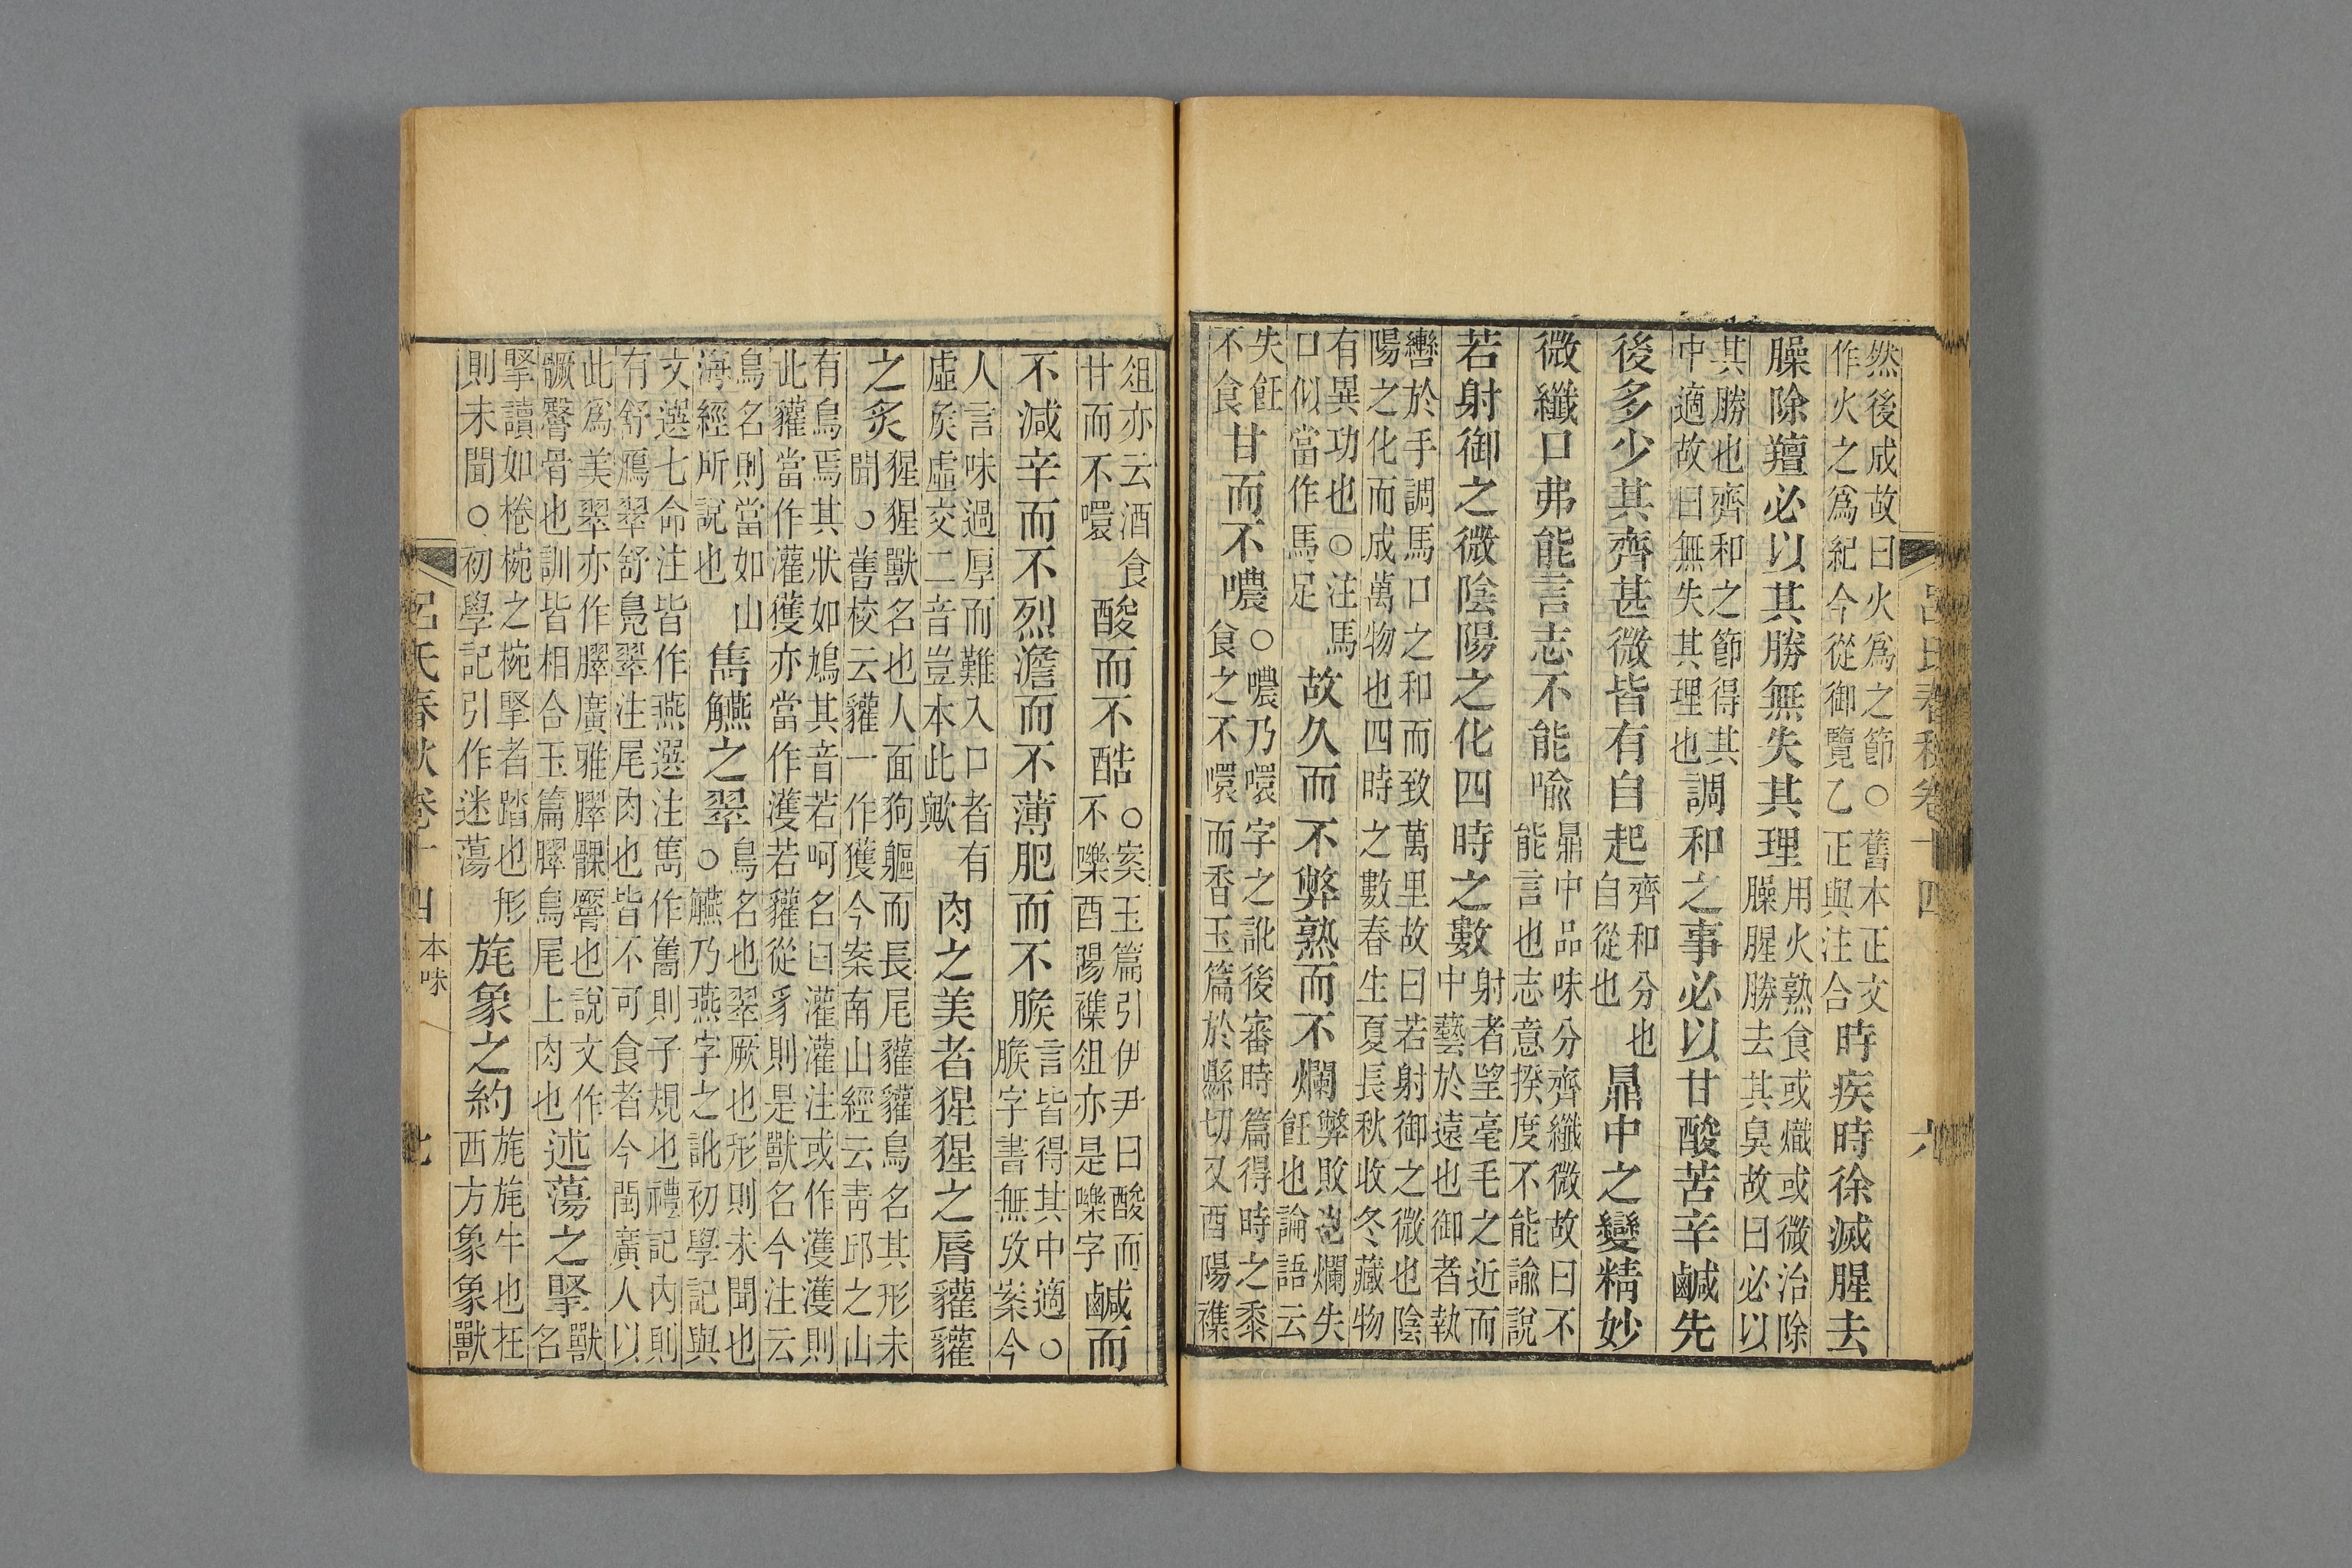 呂氏春秋卷十四　六
然後成故曰火爲之節○舊本正文
作火之爲紀今從御覽乙正與注合
時疾時徐滅腥去
臊除羶必以其勝無失其理
用火熟食或熾或微治除
臊腥勝去其臭故曰必以
其勝也齊和之節得其
中適故曰無失其理也
調和之事必以甘酸苦辛鹹先
後多少其齊甚微皆有自起
齊和分也
自從也
鼎中之變精妙
微纖口弗能言志不能喩
鼎中品味分齊纖微故曰不
能言也志意揆度不能諭說
若射御之微陰陽之化四時之數
射者望毫毛之近而
中藝於遠也御者執
轡於手調馬口之和而致萬里故曰若射御之微也陰
陽之化而成萬物也四時之數春生夏長秋收冬藏物
有異功也○注馬
口似當作馬足
故久而不弊熟而不爛
弊敗也爛失
飪也論語云
失飪
不食
甘而不噥
○噥乃噮字之訛後審時篇得時之黍
食之不噮而香玉篇於縣切又酉陽襍
俎亦云酒食
甘而不噮
酸而不酷
○案玉篇引伊尹曰酸而
不嚛酉陽襍俎亦是嚛字
鹹而
不減辛而不烈澹而不薄肥而不𦠿
言皆得其中適○
𦠿字書無攷案今
人言味過厚而難入口者有
虛矦虛交二音豈本此歟
肉之美者猩猩之脣貛貛
之炙
猩猩獸名也人面狗軀而長尾貛貛鳥名其形未
聞○舊校云貛一作獲今案南山經云靑邱之山
有鳥焉其狀如鳩其音若呵名曰灌灌注或作濩濩則
此貛當作灌獲亦當作濩若貛從豸則是獸名今注云
鳥名則當如山
海經所說也
雋觾之翠
鳥名也翠厥也形則未聞也
○觾乃燕字之訛初學記與
文選七命注皆作燕選注雋作巂則子規也禮記內則
有舒鴈翠舒鳧翠注尾肉也皆不可食者今閩廣人以
此爲美翠亦作臎廣雅臎髁也說文作
臀骨也訓皆相合玉篇臎鳥尾上肉也
述蕩之掔
獸
名
掔讀如棬椀之椀掔者踏也形
則未聞○初學記引作迷蕩
旄象之約
旄旄牛也在
西方象象獸
呂氏春秋卷十四　本味